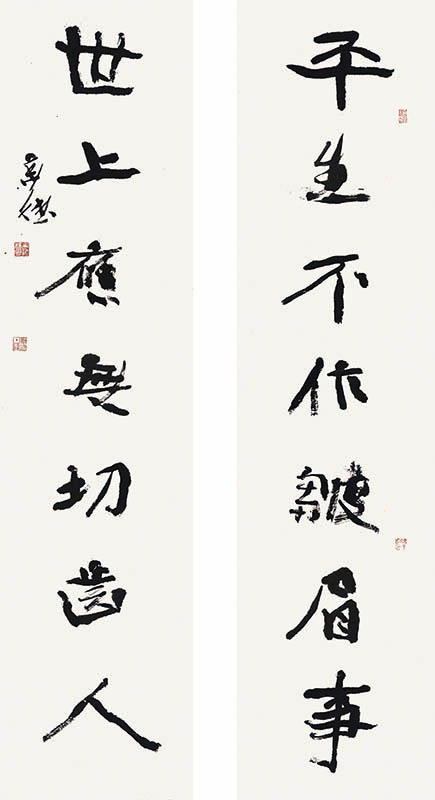 平生不作皺眉事
世上應無切齒人